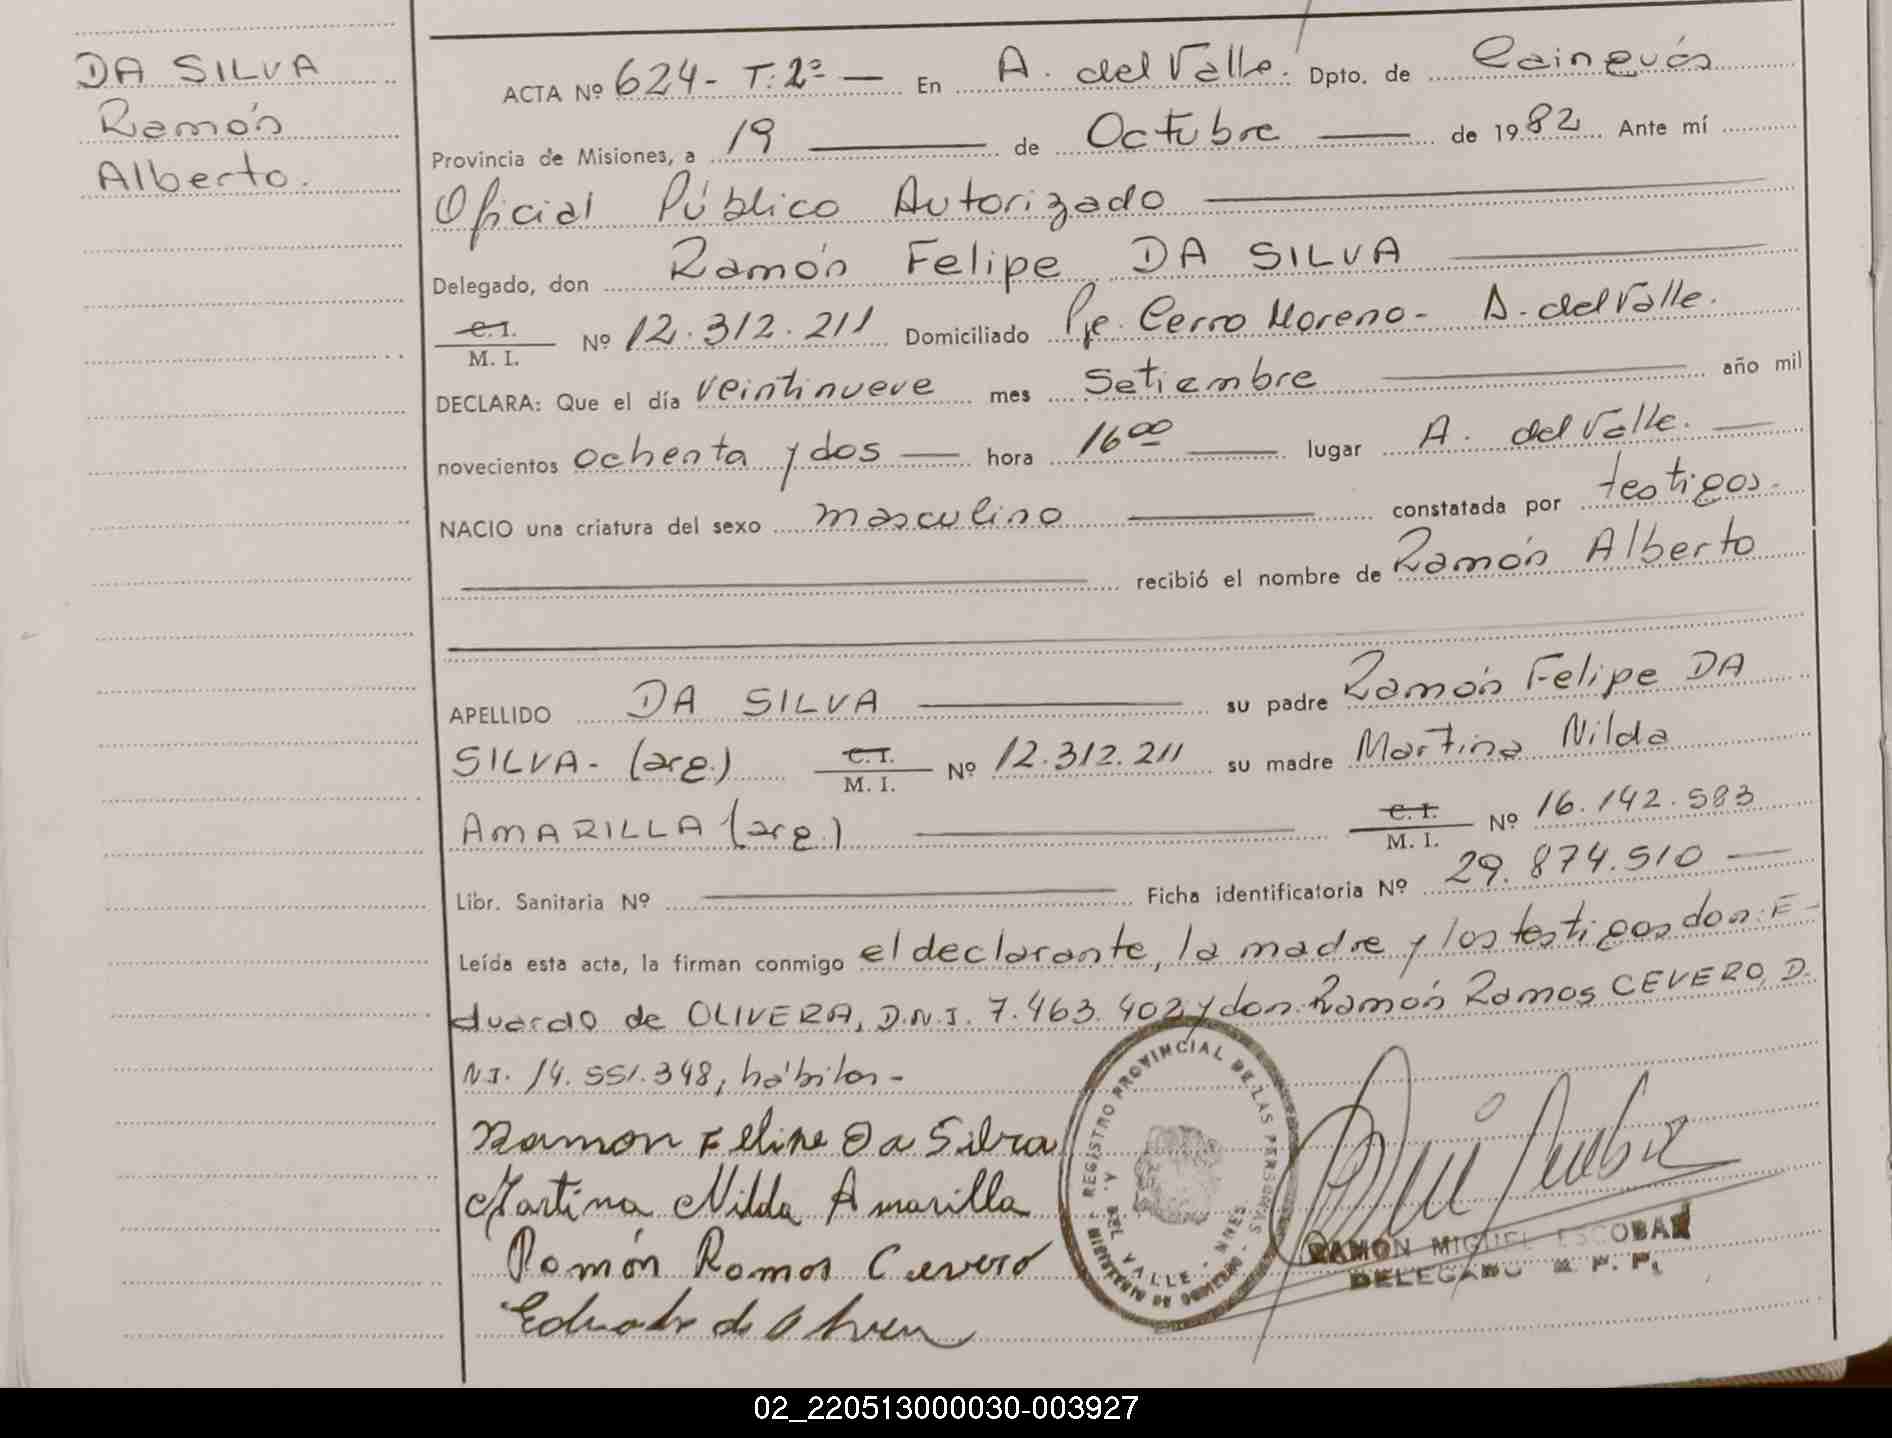 DA SILVA
Ramón
Alberto.
ACTA Nº 624- T: 2º — En A. del Valle. Dpto. de Cainguás
Provincia de Misiones, a 19 — de Octubre — de 1982 Ante mí
Oficial Público Autorizado —
Delegado, don Ramón Felipe DA SILVA —
C.I.
M. I. Nº 12.312.211 Domiciliado Pje. Cerro Moreno- A. del Valle.
DECLARA: Que el día veintinueve mes Setiembre — año mil
novecientos ochenta y dos — hora 16 00 — lugar A. del Valle. —
NACIO una criatura del sexo masculino — constatada por testigos.
— recibió el nombre de Ramón Alberto
APELLIDO DA SILVA — su padre Ramón Felipe DA
SILVA- (arg.) C.I. M. I. Nº 12.312.211 su madre Martina Nilda
AMARILLA (arg.) — C.I. M. I. Nº 16.142.593
Libr. Sanitaria Nº — Ficha identificatoria Nº 29.874.510 —
Leída esta acta, la firman conmigo el declarante, la madre y los testigos don: E-
duardo de OLIVERA, D.N.I. 7.463.402 y don: Ramón Ramos CEVERO, D.
N.I. 14.551.348, hábiles-
Ramon Felipe Da Silva
Martina Nilda Amarilla
Ramón Ramos Cevero
REGISTRO PROVINCIAL DE LAS PERSONAS
DEL VALLE - MNES
MINISTERIO DE GOBIERNO
RAMON MIGUEL ESCOBAR
DELEGADO R. P. P.
02_220513000030-003927